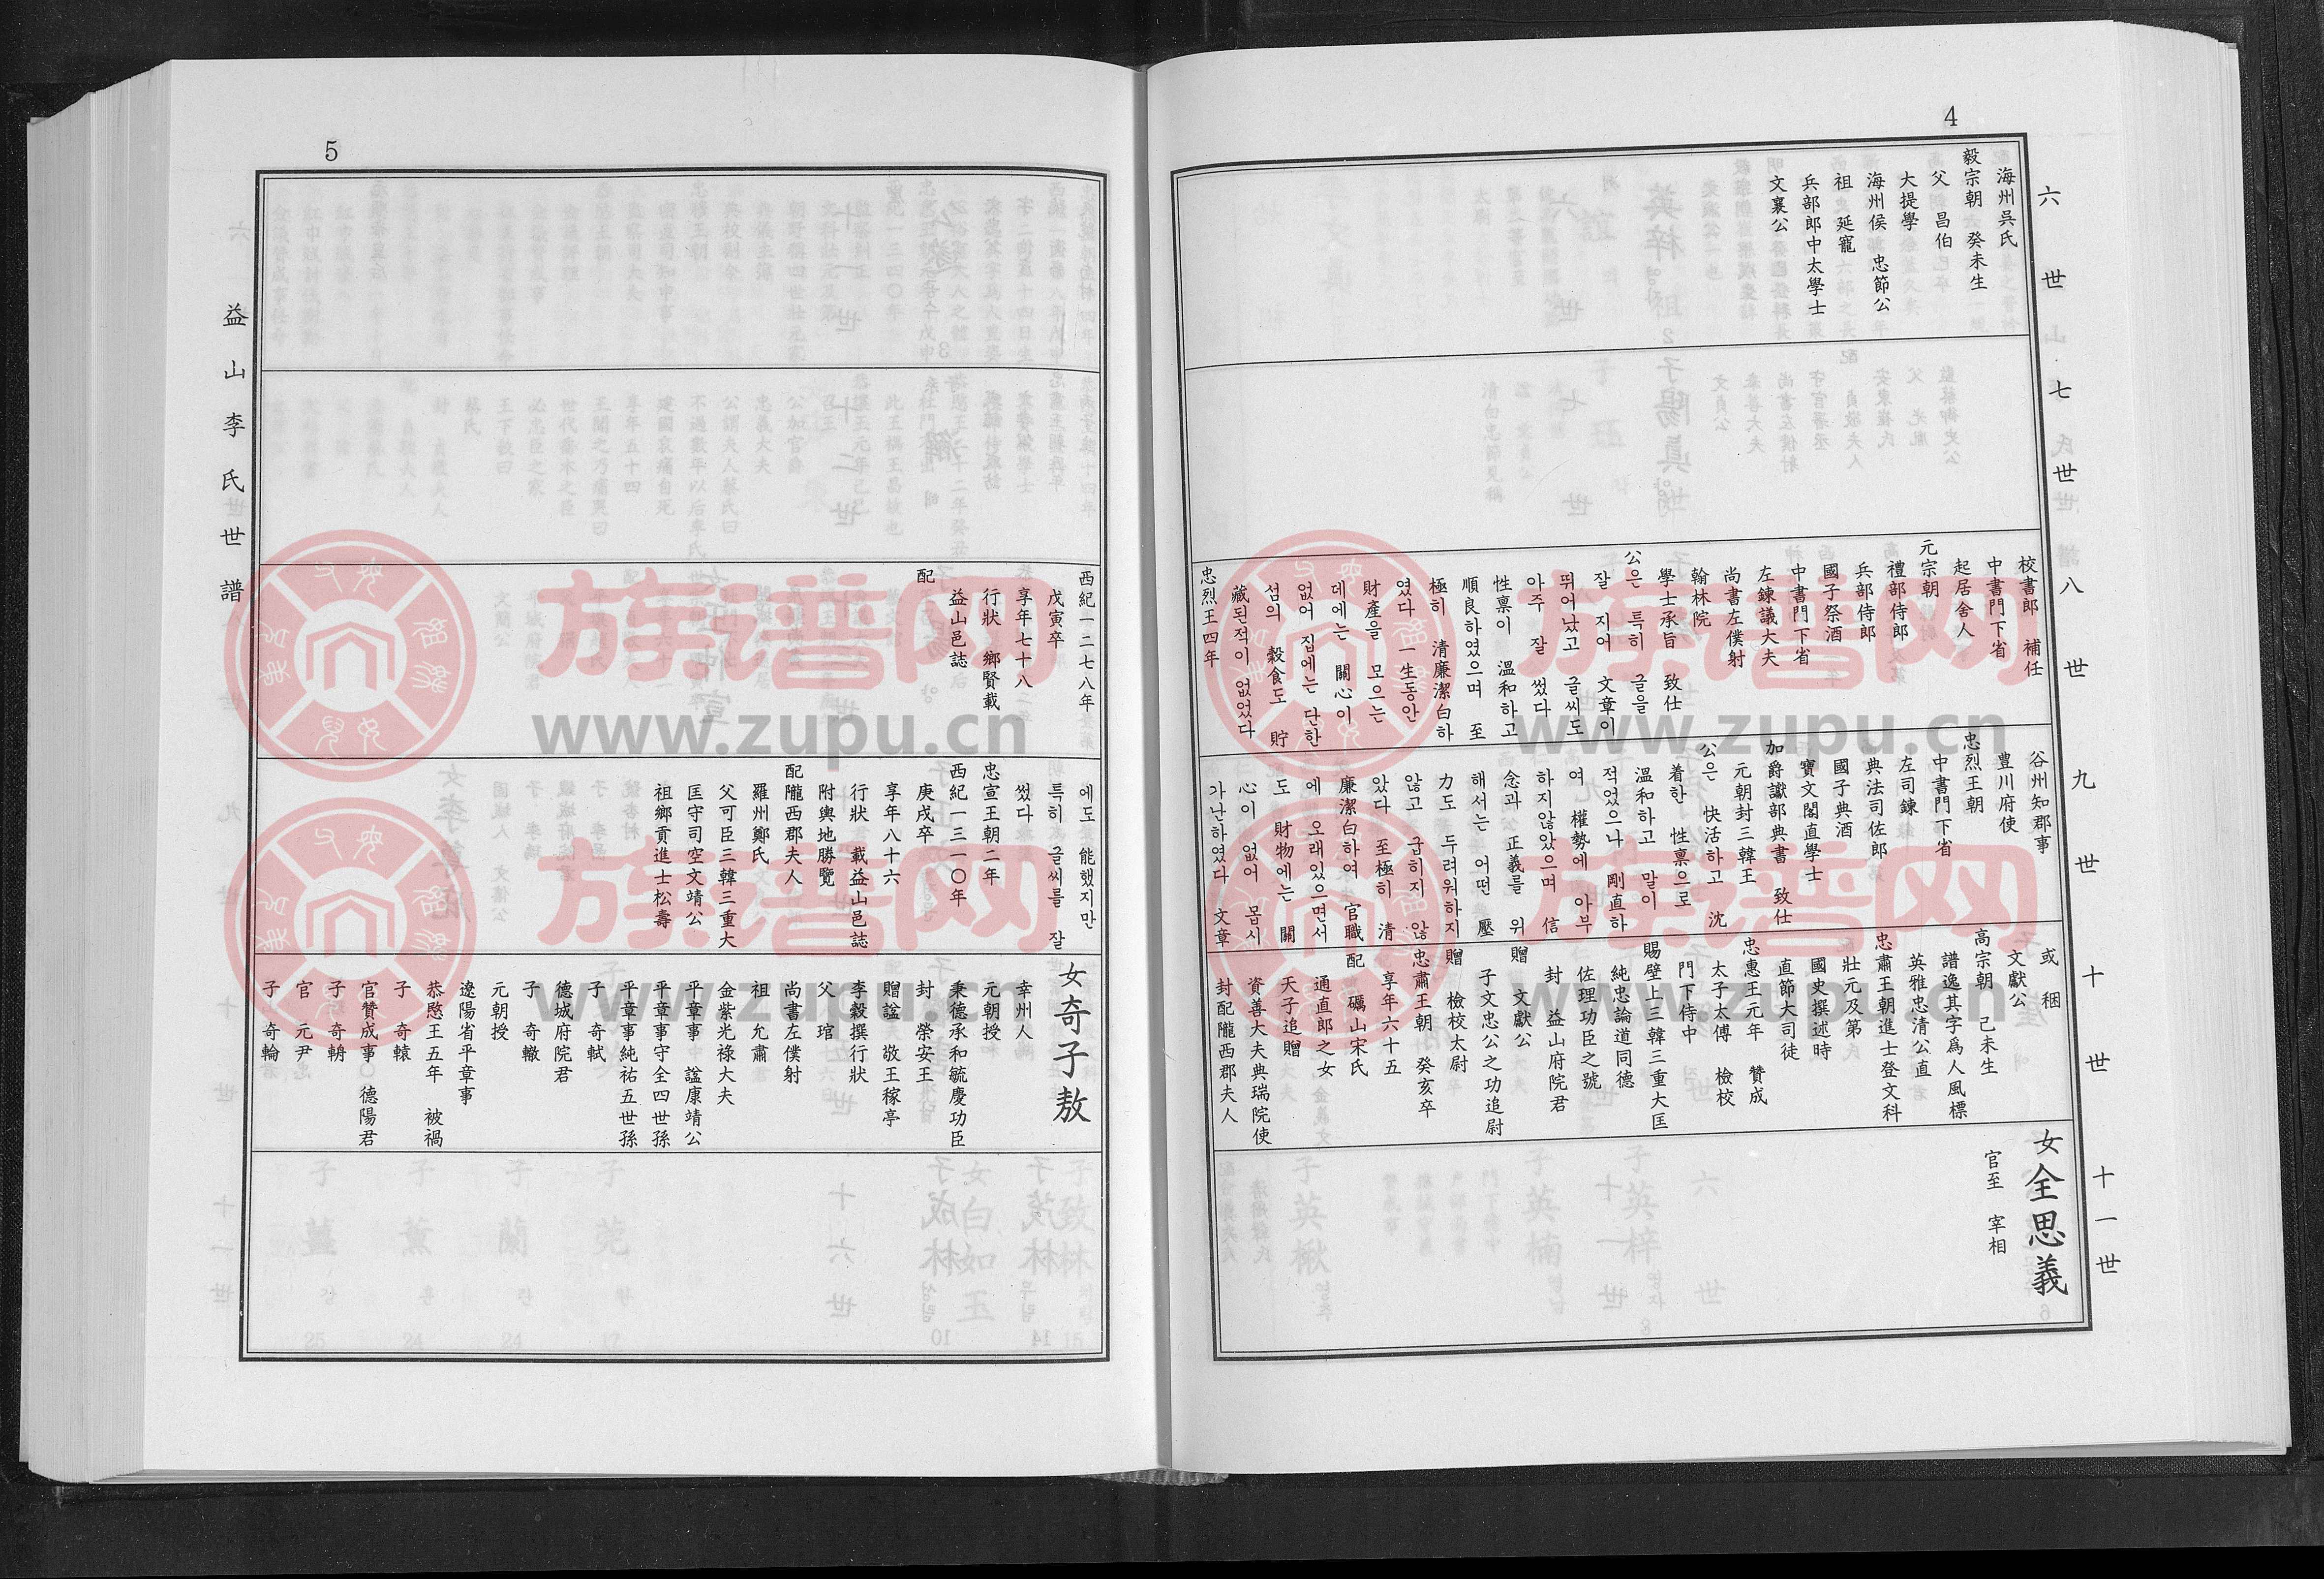 4
六世
七世
八世
九世
十世
十一世
海州吳氏
毅宗朝 癸未生
父 昌伯
大提學
海州侯 忠節公
祖 延寵
兵部郎中太學士
文襄公
校書郎 補任
中書門下省
起居舍人
元宗朝
禮部侍郎
兵部侍郎
國子祭酒
中書門下省
左鍊議大夫
尚書左僕射
翰林院
學士承旨 致仕
公은 특히 글을
잘 지어 文章이
뛰어났고 글씨도
아주 잘 썼다
性禀이 溫和하고
順良하였으며 至
極히 清廉潔白하
였다 一生동안
財產을 모으는
데에는 關心이
없어 집에는 단한
섬의 穀食도 貯
藏된적이 없었다
忠烈王四年
谷州知郡事
豊川府使
忠烈王朝
中書門下省
左司鍊
典法司佐郎
國子典酒
寶文閣直學士
加爵讞部典書 致仕
元朝封三韓王
公은 快活하고 沈
着한 性禀으로
溫和하고 말이
적었으나 剛直하
여 權勢에 아부
하지않았으며 信
念과 正義를 위
해서는 어떤 壓
力도 두려워하지
않고 굽히지 않
았다 至極히 清
廉潔白하여 官職
에 오래있으면서
도 財物에는 關
心이 없어 몹시
가난하였다 文章
或 稇
文獻公
高宗朝 己未生
譜逸其字爲人風標
英雅忠清公直
忠肅王朝進士登文科
壯元及第
國史撰述時
直節大司徒
忠惠王元年 贊成
太子太傅 檢校
門下侍中
賜壁上三韓三重大匡
純忠論道同德
佐理功臣之號
封 益山府院君
文獻公
贈
子文忠公之功追尉
檢校太尉
贈
忠肅王朝 癸亥卒
享年六十五
配 礪山宋氏
通直郎之女
天子追贈
資善大夫典瑞院使
封配隴西郡夫人
女全思義
官至 宰相
5
益山李氏世譜
西紀一二七八年
戊寅卒
享年七十八
行狀 鄉賢載
益山邑誌
配
에도 能했지만
특히 글씨를 잘
썼다
忠宣王朝二年
西紀一三一〇年
庚戌卒
享年八十六
行狀 載益山邑誌
附輿地勝覽
配隴西郡夫人
羅州鄭氏
父可臣三韓三重大
匡守司空文靖公
祖鄉貢進士松壽
女奇子敖
幸州人
元朝授
秉德承和毓慶功臣
封 榮安王
贈諡 敬王稼亭
李穀撰行狀
父 琯
尚書左僕射
祖 允肅
金紫光祿大夫
平章事 諡康靖公
平章事守全四世孫
平章事純祐五世孫
子 奇軾
德城府院君
子 奇轍
元朝授
遼陽省平章事
恭愍王五年 被禍
子 奇轅
官贊成事 德陽君
子 奇輈
官 元尹
子 奇輪